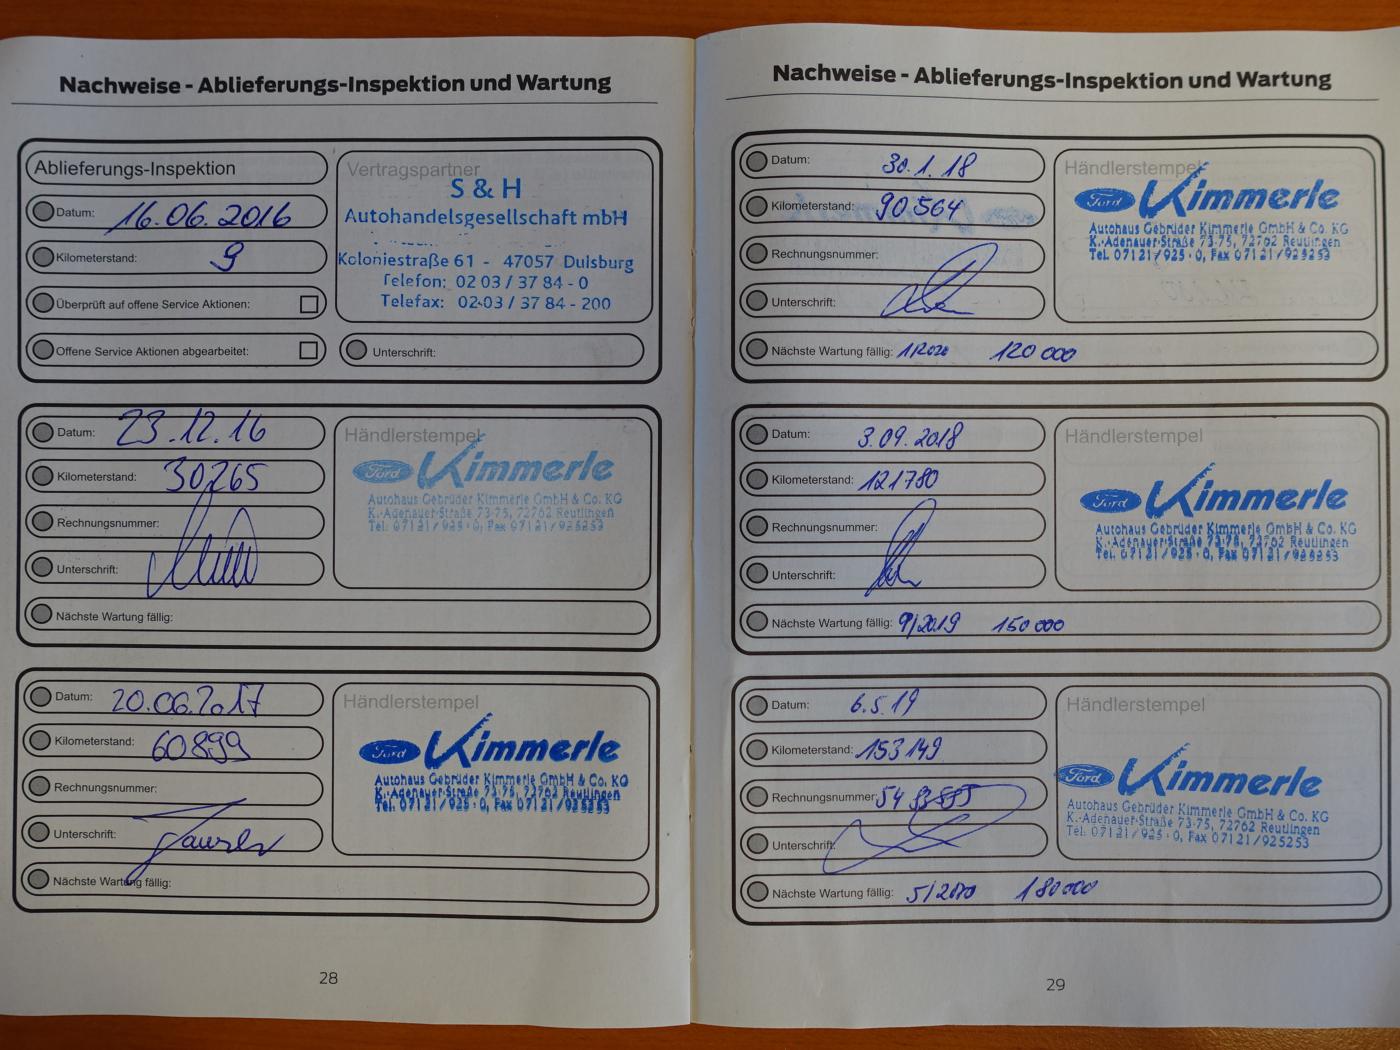 Nachweise - Ablieferungs-Inspektion und Wartung
Ablieferungs-Inspektion
Datum: 16.06.2016
Kilometerstand: 9
Überprüft auf offene Service Aktionen:
Offene Service Aktionen abgearbeitet:
Vertragspartner
S & H
Autohandelsgesellschaft mbH
Koloniestraße 61 - 47057 Duisburg
Telefon: 02 03 / 37 84 - 0
Telefax: 02 03 / 37 84 - 200
Unterschrift:
Datum: 23.12.16
Kilometerstand: 30265
Rechnungsnummer:
Unterschrift:
Händlerstempel
Ford Kimmerle
Autohaus Gebrüder Kimmerle GmbH & Co. KG
K.-Adenauer-Straße 73-75, 72762 Reutlingen
Tel. 07121/925-0, Fax 07121/925253
Nächste Wartung fällig:
Datum: 20.06.2017
Kilometerstand: 60899
Rechnungsnummer:
Unterschrift:
Händlerstempel
Ford Kimmerle
Autohaus Gebrüder Kimmerle GmbH & Co. KG
K.-Adenauer-Straße 73-75, 72762 Reutlingen
Tel. 07121/925-0, Fax 07121/925253
Nächste Wartung fällig:
28
Nachweise - Ablieferungs-Inspektion und Wartung
Datum: 30.1.18
Kilometerstand: 90564
Rechnungsnummer:
Unterschrift:
Händlerstempel
Ford Kimmerle
Autohaus Gebrüder Kimmerle GmbH & Co. KG
K.-Adenauer-Straße 73-75, 72762 Reutlingen
Tel. 07121/925-0, Fax 07121/925253
Nächste Wartung fällig: 1/2020 120 000
Datum: 3.09.2018
Kilometerstand: 121780
Rechnungsnummer:
Unterschrift:
Händlerstempel
Ford Kimmerle
Autohaus Gebrüder Kimmerle GmbH & Co. KG
K.-Adenauer-Straße 73-75, 72762 Reutlingen
Tel. 07121/925-0, Fax 07121/925253
Nächste Wartung fällig: 9/2019 150 000
Datum: 6.5.19
Kilometerstand: 153149
Rechnungsnummer:
Unterschrift:
Händlerstempel
Ford Kimmerle
Autohaus Gebrüder Kimmerle GmbH & Co. KG
K.-Adenauer-Straße 73-75, 72762 Reutlingen
Tel. 07121/925-0, Fax 07121/925253
Nächste Wartung fällig: 5/2020 180000
29